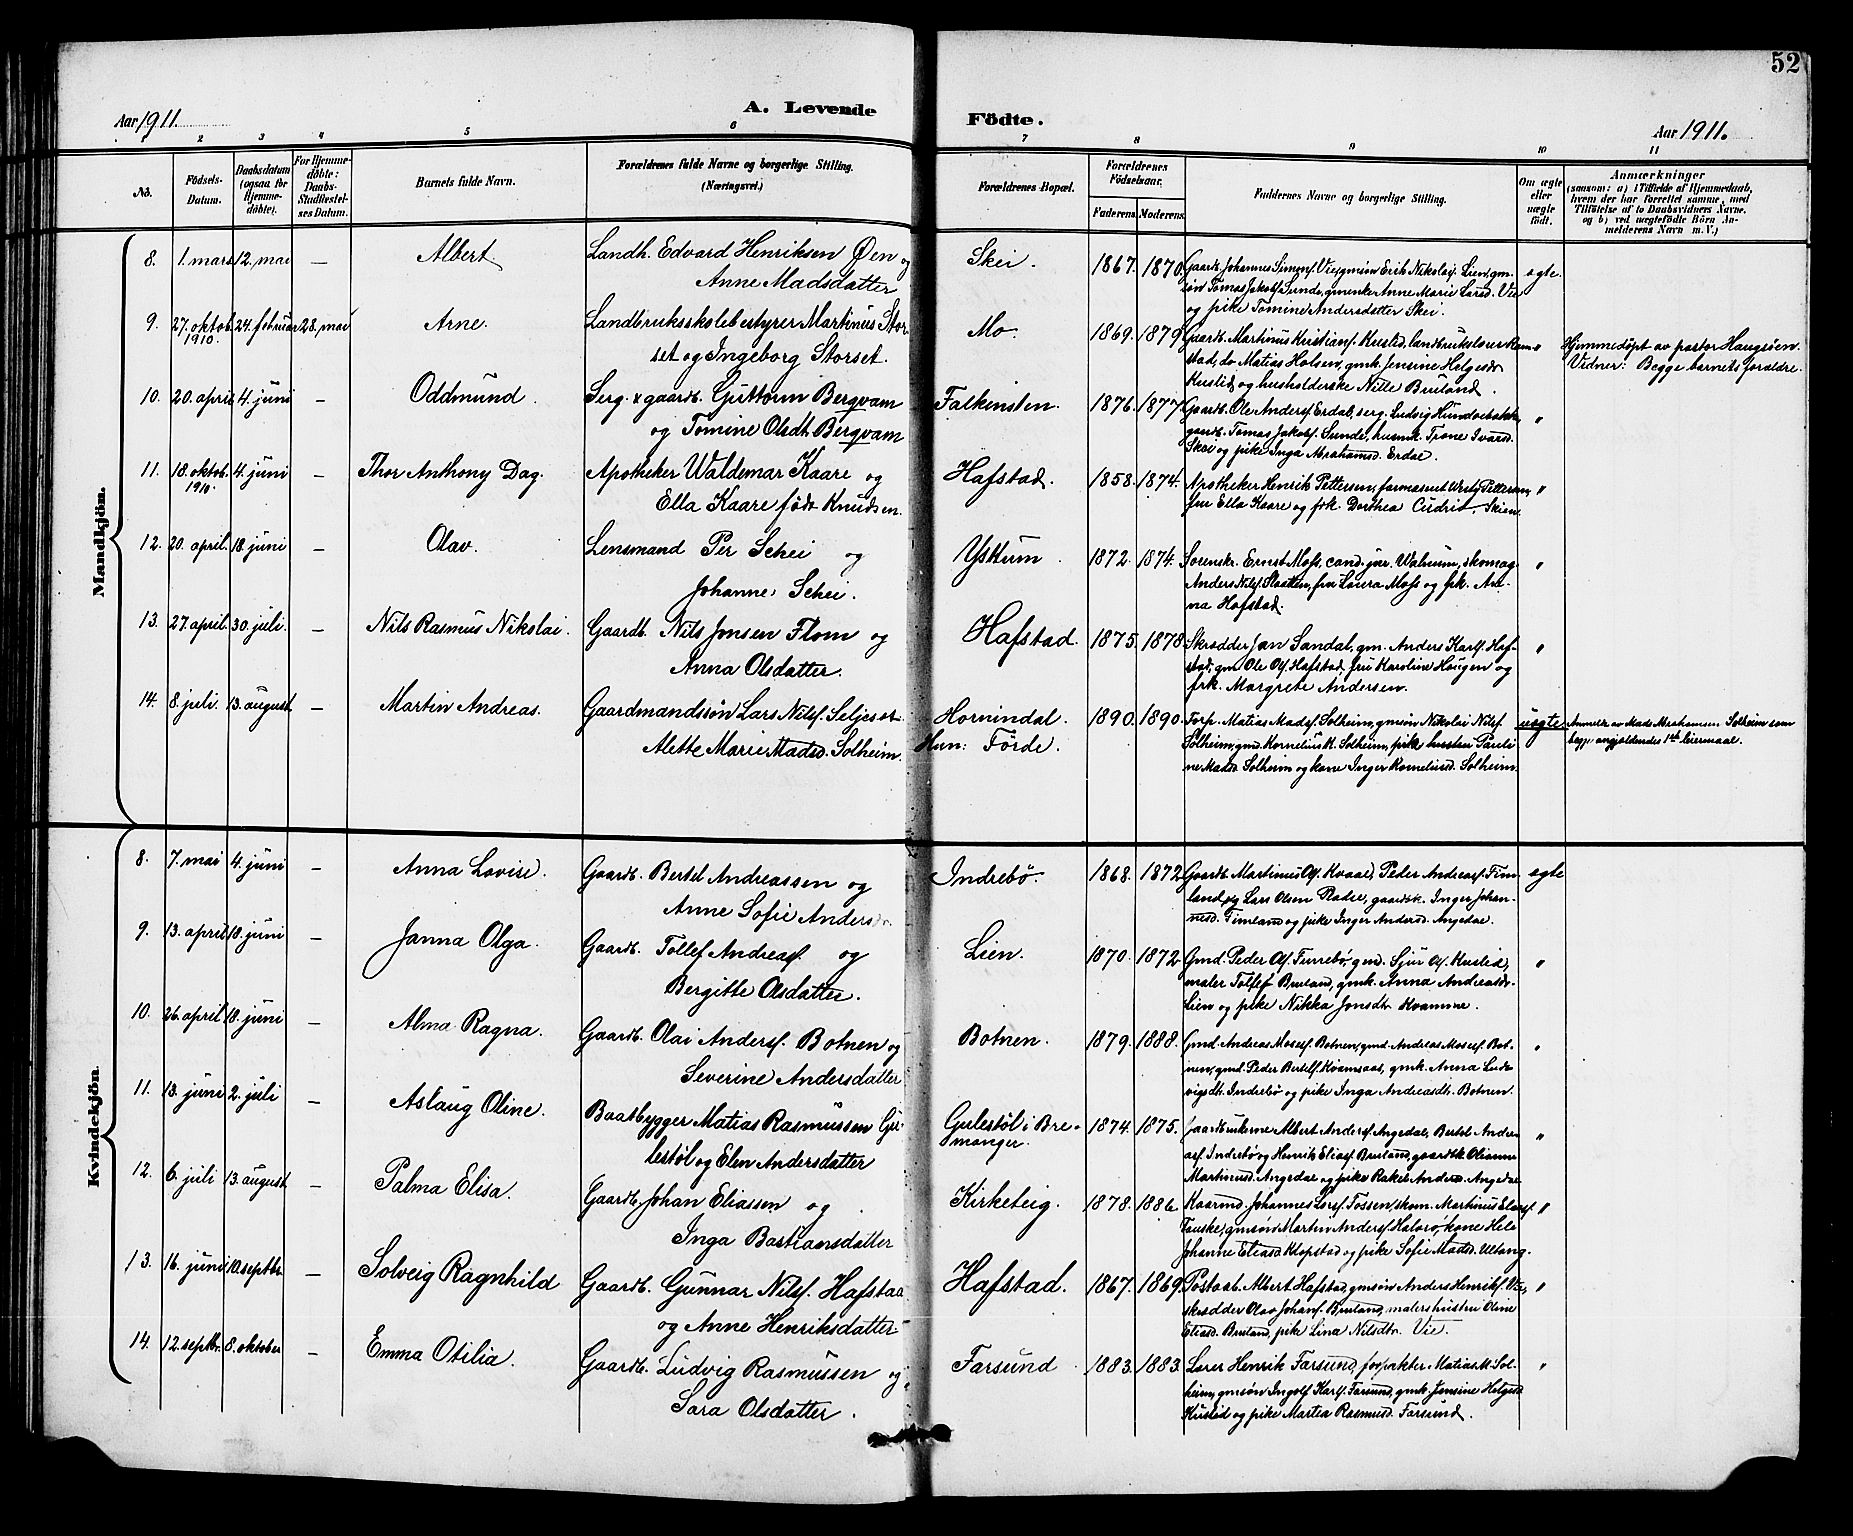 52
Aar 1911.
A. Levende
Födte.
Aar 1911.
1 2 3 4 5 6 7 8 9 10 11
No.
Födsels-
Datum.
Daabsdatum
(ogsaa for
Hjemme-
döbte).
For Hjemme-
döbte:
Daabs-
Stadfæstel-
ses Datum.
Barnets fulde Navn.
Forældrenes fulde Navne og borgerlige Stilling.
(Næringsvei.)
Forældrenes Bopæl.
Forældrenes
Födselsaar.
Faderens. Moderens.
Faddernes Navne og borgerlige Stilling.
Om ægte
eller
uægte
födt.
Anmærkninger
(saasom: a) i Tilfælde af Hjemmedaab,
hvem der har forrettet samme, med
Tilföielse af to Daabsvidners Navne,
og b) ved uægtefödte Börn An-
melderens Navn m. V.)
Mandkjön.
8. 1. mars 12. mai — Albert. Landh. Edvard Henriksen Øen og
Anne Madsdatter
Skei. 1867. 1870. Gaardb. Johannes Simons. Vie, gmsøn Erik Nikolais. Lien, gm-
søn Tomas Jakobs. Sunde, gmenke Anne Marie Larsd. Vie
og pike Tomine Andersdatter Skei.
ægte.
9. 27. oktob. 1910. 24. februar 28. mai Arne. Landbruksskolebestyrer Martinus Stor-
set og Ingeborg Storset.
Mo. 1869. 1879. Gaardb. Martinus Kristians. Kuslid, landbrukslærer Ram-
stad, do Matias Holsen, gmk. Jensine Helgesdr
Kuslid og husholderske Nille Bruland.
" Hjemmedøpt av pastor Haugsøen.
Vidner: Begge barnets forældre.
10. 20. april 4. juni — Oddmund. Serg. & gaardb. Guttorm Bergvam
og Tomine Olsdt. Bergvam
Falkensten. 1876. 1877. Gaardb. Ole Anders. Erdal, serg. Ludvig Hundvebakke
gaardb. Tomas Jakobs. Sunde, husmk. Trone Ivarsd.
Skei og pike Inga Abrahamsd. Erdal.
"
11. 18. oktob. 1910. 4. juni — Thor Anthony Dag. Apotheker Waldemar Kaare og
Ella Kaare født Knudsen.
Hafstad. 1858. 1874. Apotheker Henrik Pettersen, farmaceut Pettersen,
fru Ella Kaare og frk. Dorthea Skien.
"
12. 20. april. 18. juni — Olav. Lensmand Per Schei og
Johanne Schei.
Ysttum. 1872. 1874. Sorenskr. Ernst Mohs, cand. jur. Walnum, skomag.
Anders Nils. Slaatten, fru Laura Mohs og frk. An-
na Hafstad.
"
13. 27. april. 30. juli. — Nils Rasmus Nikolai. Gaardb. Nils Jonsen Flom og
Anna Olsdatter.
Hafstad. 1875. 1878. Skrædder Jan Sandal, gm. Anders Karls. Haf-
stad, gm Ole Ols. Hafstad, fru Karoline Haugen og
frk. Margrete Andersen.
"
14. 8. juli. 13. august — Martin Andreas. Gaardmandssøn Lars Nils. Seljeset
Alette Marie Madsd. Solheim.
Hornindal.
Hun: Förde.
1890. 1890. Forp. Matias Mads. Solheim, gmsøn Nikolai Nils.
Solheim, gmd Kornelius M. Solheim, pike hustru Pauli-
ne Madsd. Solheim og kone Inger Korneliusd. Solheim.
uægte Anmeldt av Mads Abrahamsen Solheim som
begge angjældendes 1ste leiermaal.
Kvindekjön.
8. 7. mai 4. juni — Anna Lovise. Gaardb. Bertel Andreassen og
Anne Sofie Andersdr.
Indrebø. 1868. 1872. Gaardb. Martinus Ols. Kvaal, Peder Andreas. Tim-
land, og Lars Olsen gaardk. Inger Johan-
nesd. Timland og pike Inger Andersd. Angedal.
ægte
9. 13. april 10. juni — Janna Olga. Gaardb. Tollef Andreas. og
Bergitte Olsdatter.
Lien. 1870. 1872. Gmd. Peder Ols. Furrebø, gmd. Sjur Ols. Kuslid,
maler Tollef Bruland, gmk. Anna Andreasdr.
Lien og pike Nikka Jonsdtr. Kvamme.
"
10. 26. april 18. juni — Alma Ragna. Gaardb. Olai Anders. Botnen og
Severine Andersdatter
Botnen. 1879. 1888. Gmd. Andreas Moses. Botnen, gmd. Andreas Moses. Bot-
nen, gmd. Peder Bertels. Kvamsaas, gmk. Anna Lud-
vigsdt. Indrebø og pike Inga Andreasdt. Botnen.
"
11. 13. juni 2. juli — Aslaug Oline. Baatbygger Matias Rasmussen Gu-
lestøl og Elen Andersdatter
Gulestøl i Bre-
manger.
1874. 1875. Gaardbrukerne Albert Anders. Angedal, Bertel Andre-
as. Indrebø og Henrik Elias. Bruland, gaardk Olianne
Martinusd. Angedal og pike Rakel Andersd. Angedal.
"
12. 6. juli 13. august — Palma Elisa. Gaardb. Johan Eliassen og
Inga Bastiansdatter
Kirketeig. 1878. 1886. Kaarmd. Johannes Lars. Fossen, skom. Martinus Elias.
Tauske, gmsøn Martin Anders. Halvor, kone Hele
Johanne Eliasd. Klopstad og pike Sofie Madsd. Ullang.
"
13. 16. juni 10. septbr. — Solveig Ragnhild Gaardb. Gunnar Nils. Hafstad
og Anne Henriksdatter
Hafstad. 1867. 1869. Postaab. Albert Hafstad, gmsøn Anders Henriks. Vie,
skrædder Olav Johans. Bruland, malers hustru Oline
Eliasd. Bruland, pike Lina Nilsdtr. Vie.
"
14. 12. septbr. 8. oktober — Emma Otilia. Gaardb. Ludvig Rasmussen og
Sara Olsdatter.
Farsund 1883. 1883. Lærer Henrik Farsund, forpakter Matias M. Sol-
heim, gmsøn Ingolf Karls. Farsund, gmk. Jensine Helgesd.
Kuslid og pike Martea Rasmusd. Farsund.
"